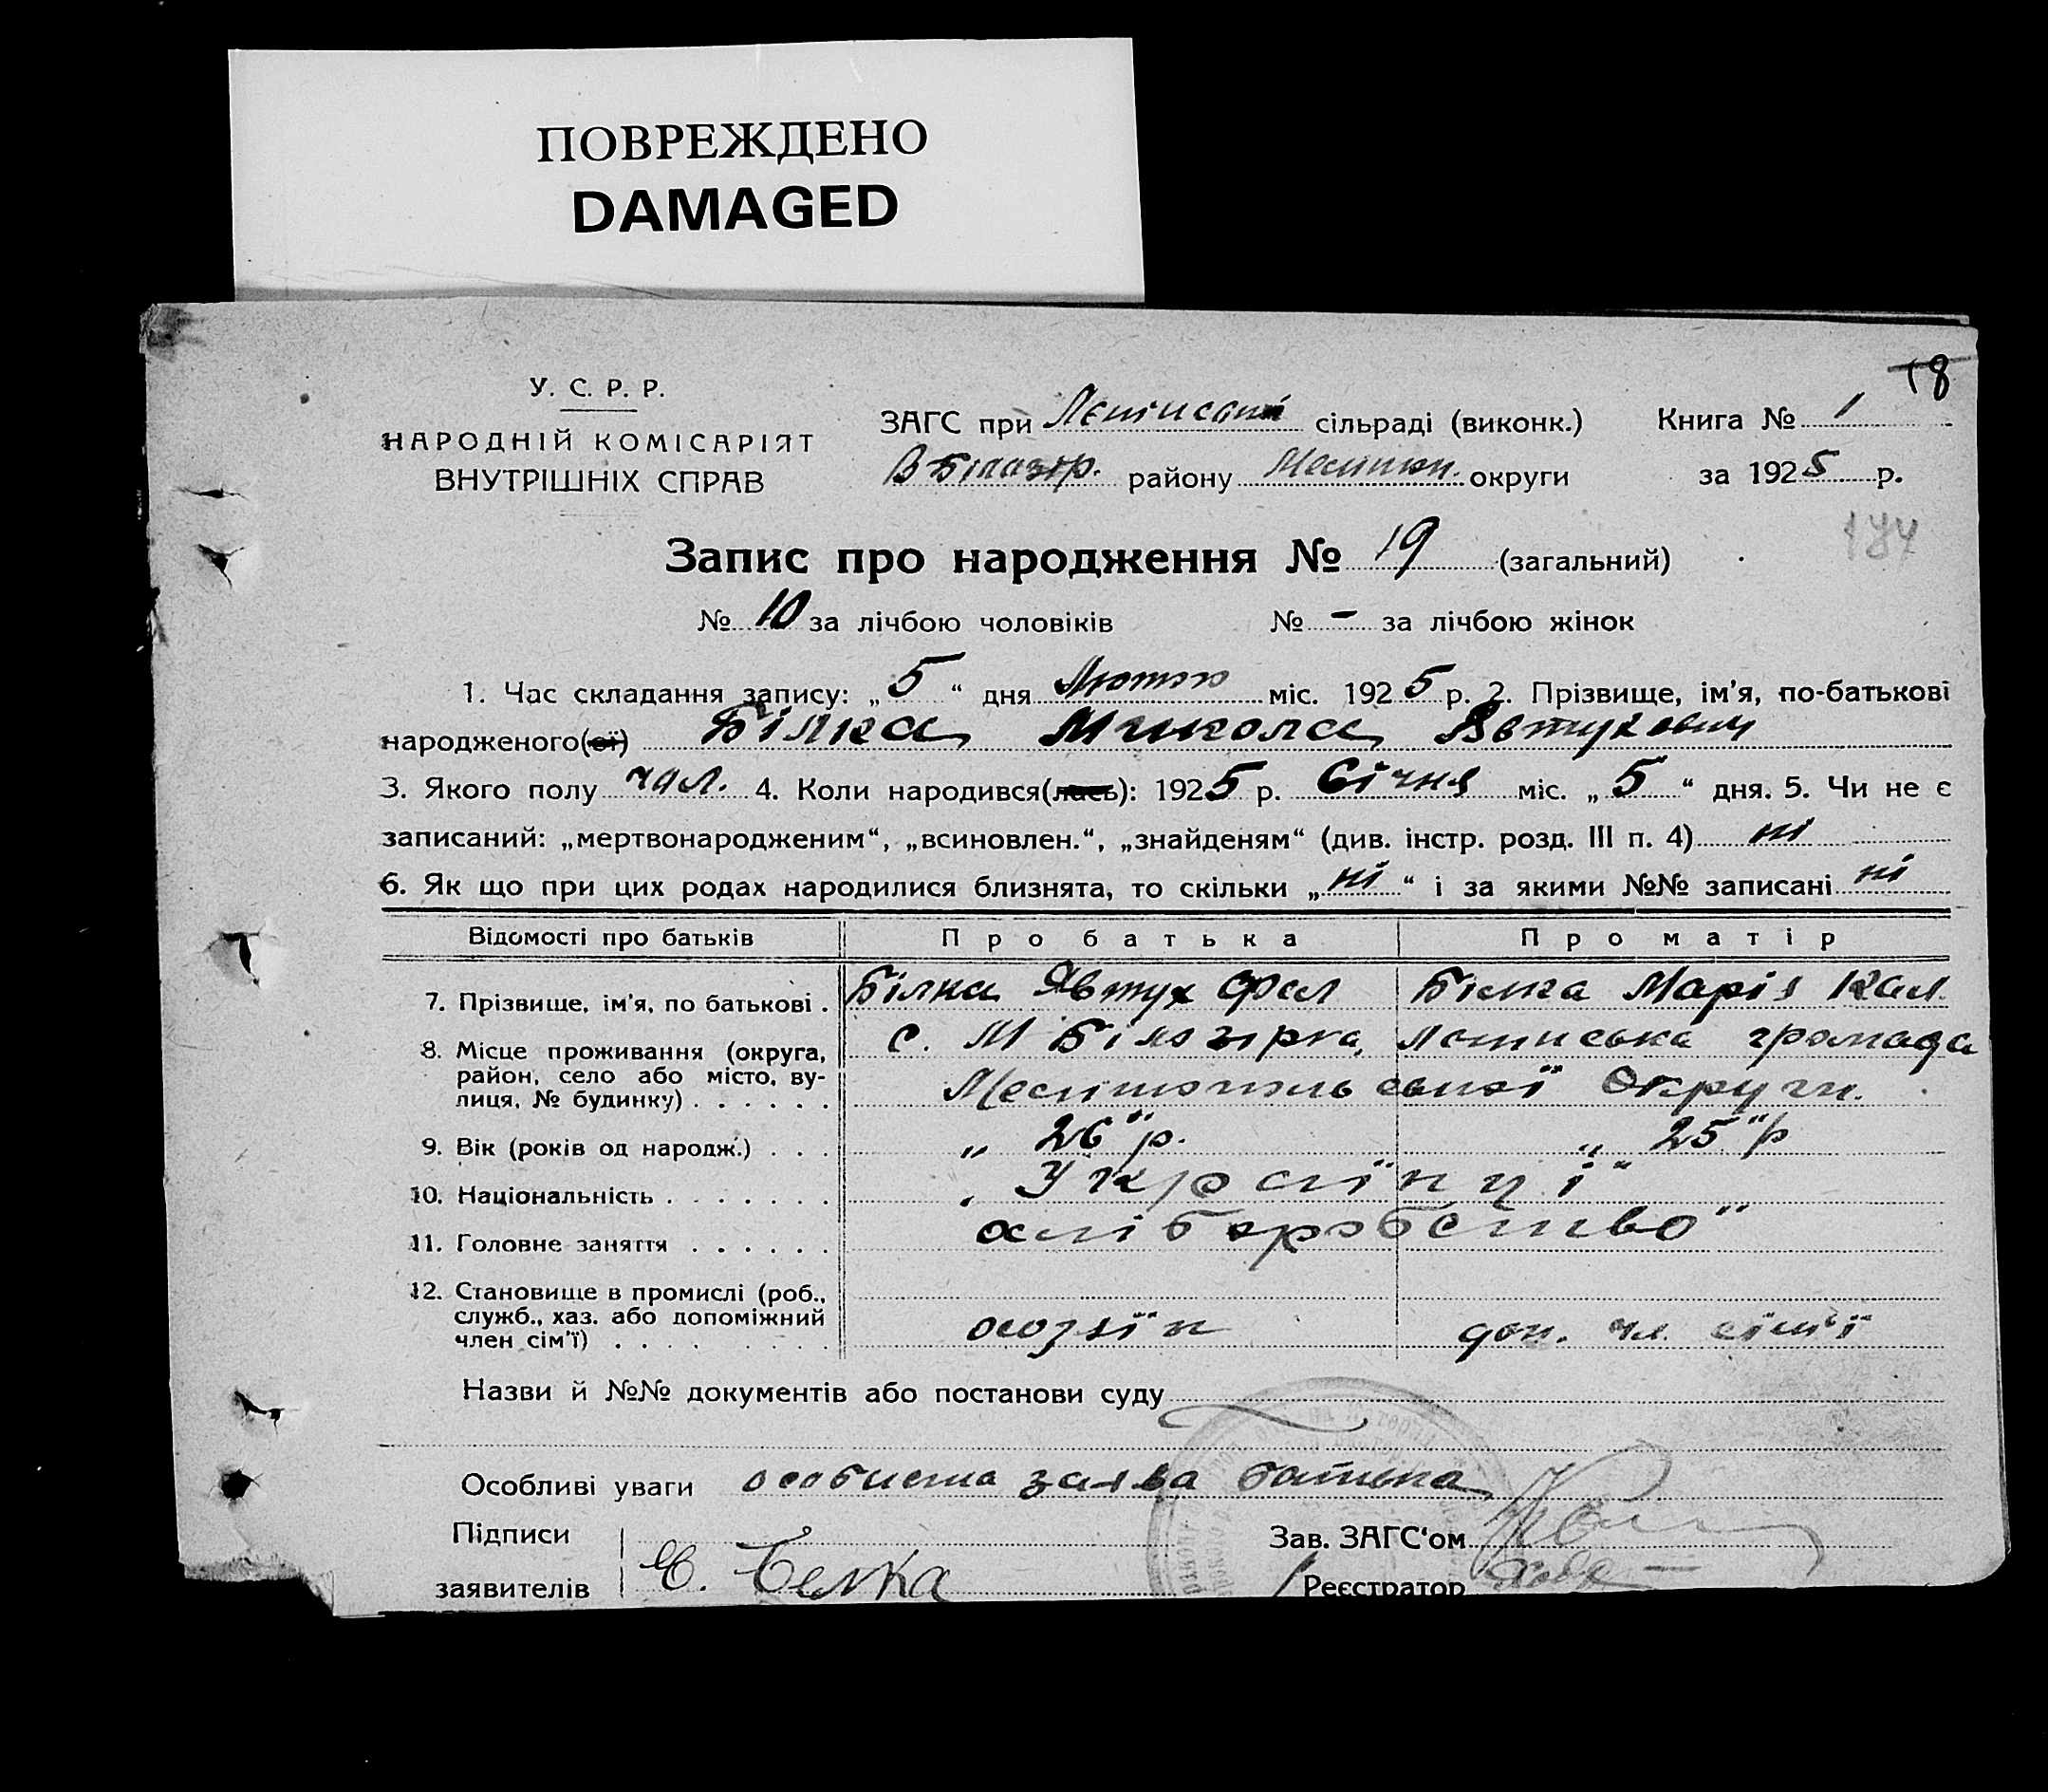 ПОВРЕЖДЕНО
DAMAGED
18
У. С. Р. Р.
НАРОДНІЙ КОМІСАРІЯТ
ВНУТРІШНІХ СПРАВ
ЗАГС при сільраді (виконк.) Книга № 1
В Білозір. району Мелітоп. округи за 1925 р.
184
Запис про народження № 19 (загальний)
№ 10 за лічбою чоловіків № - за лічбою жінок
1. Час складання запису: „5“ дня Лютого міс. 1925 р. 2. Прізвище, ім'я, по-батькові
народженого(ої) Білка Микола Явтухович
3. Якого полу чол. 4. Коли народився(лась): 1925 р. Січня міс. „5“ дня. 5. Чи не є
записаний: „мертвонародженим“, „всиновлен.“, „знайденям“ (див. інстр. розд. III п. 4) ні
6. Як що при цих родах народилися близнята, то скільки „ні“ і за якими №№ записані ні
Відомості про батьків Про батька Про матір
7. Прізвище, ім'я, по батькові . Білка Явтух Фал Білка Марія Кал.
8. Місце проживання (округа, район, село або місто, вулиця, № будинку) . . . . . . с. М Білозірка, громада
Мелітопольської Округи.
9. Вік (років од народж.) . . . „26“ р. „25“ р
10. Національність . . . . . . . „Українці“
11. Головне заняття . . . . . . хліборобство“
12. Становище в промислі (роб., служб., хаз. або допоміжний член сім'ї) . . . . . . . . хозяїн доп. чл. сім'ї
Назви й №№ документів або постанови суду
Особливі уваги особиста заява батька
Підписи Зав. ЗАГС‘ом
заявителів Е. Белка Реєстратор